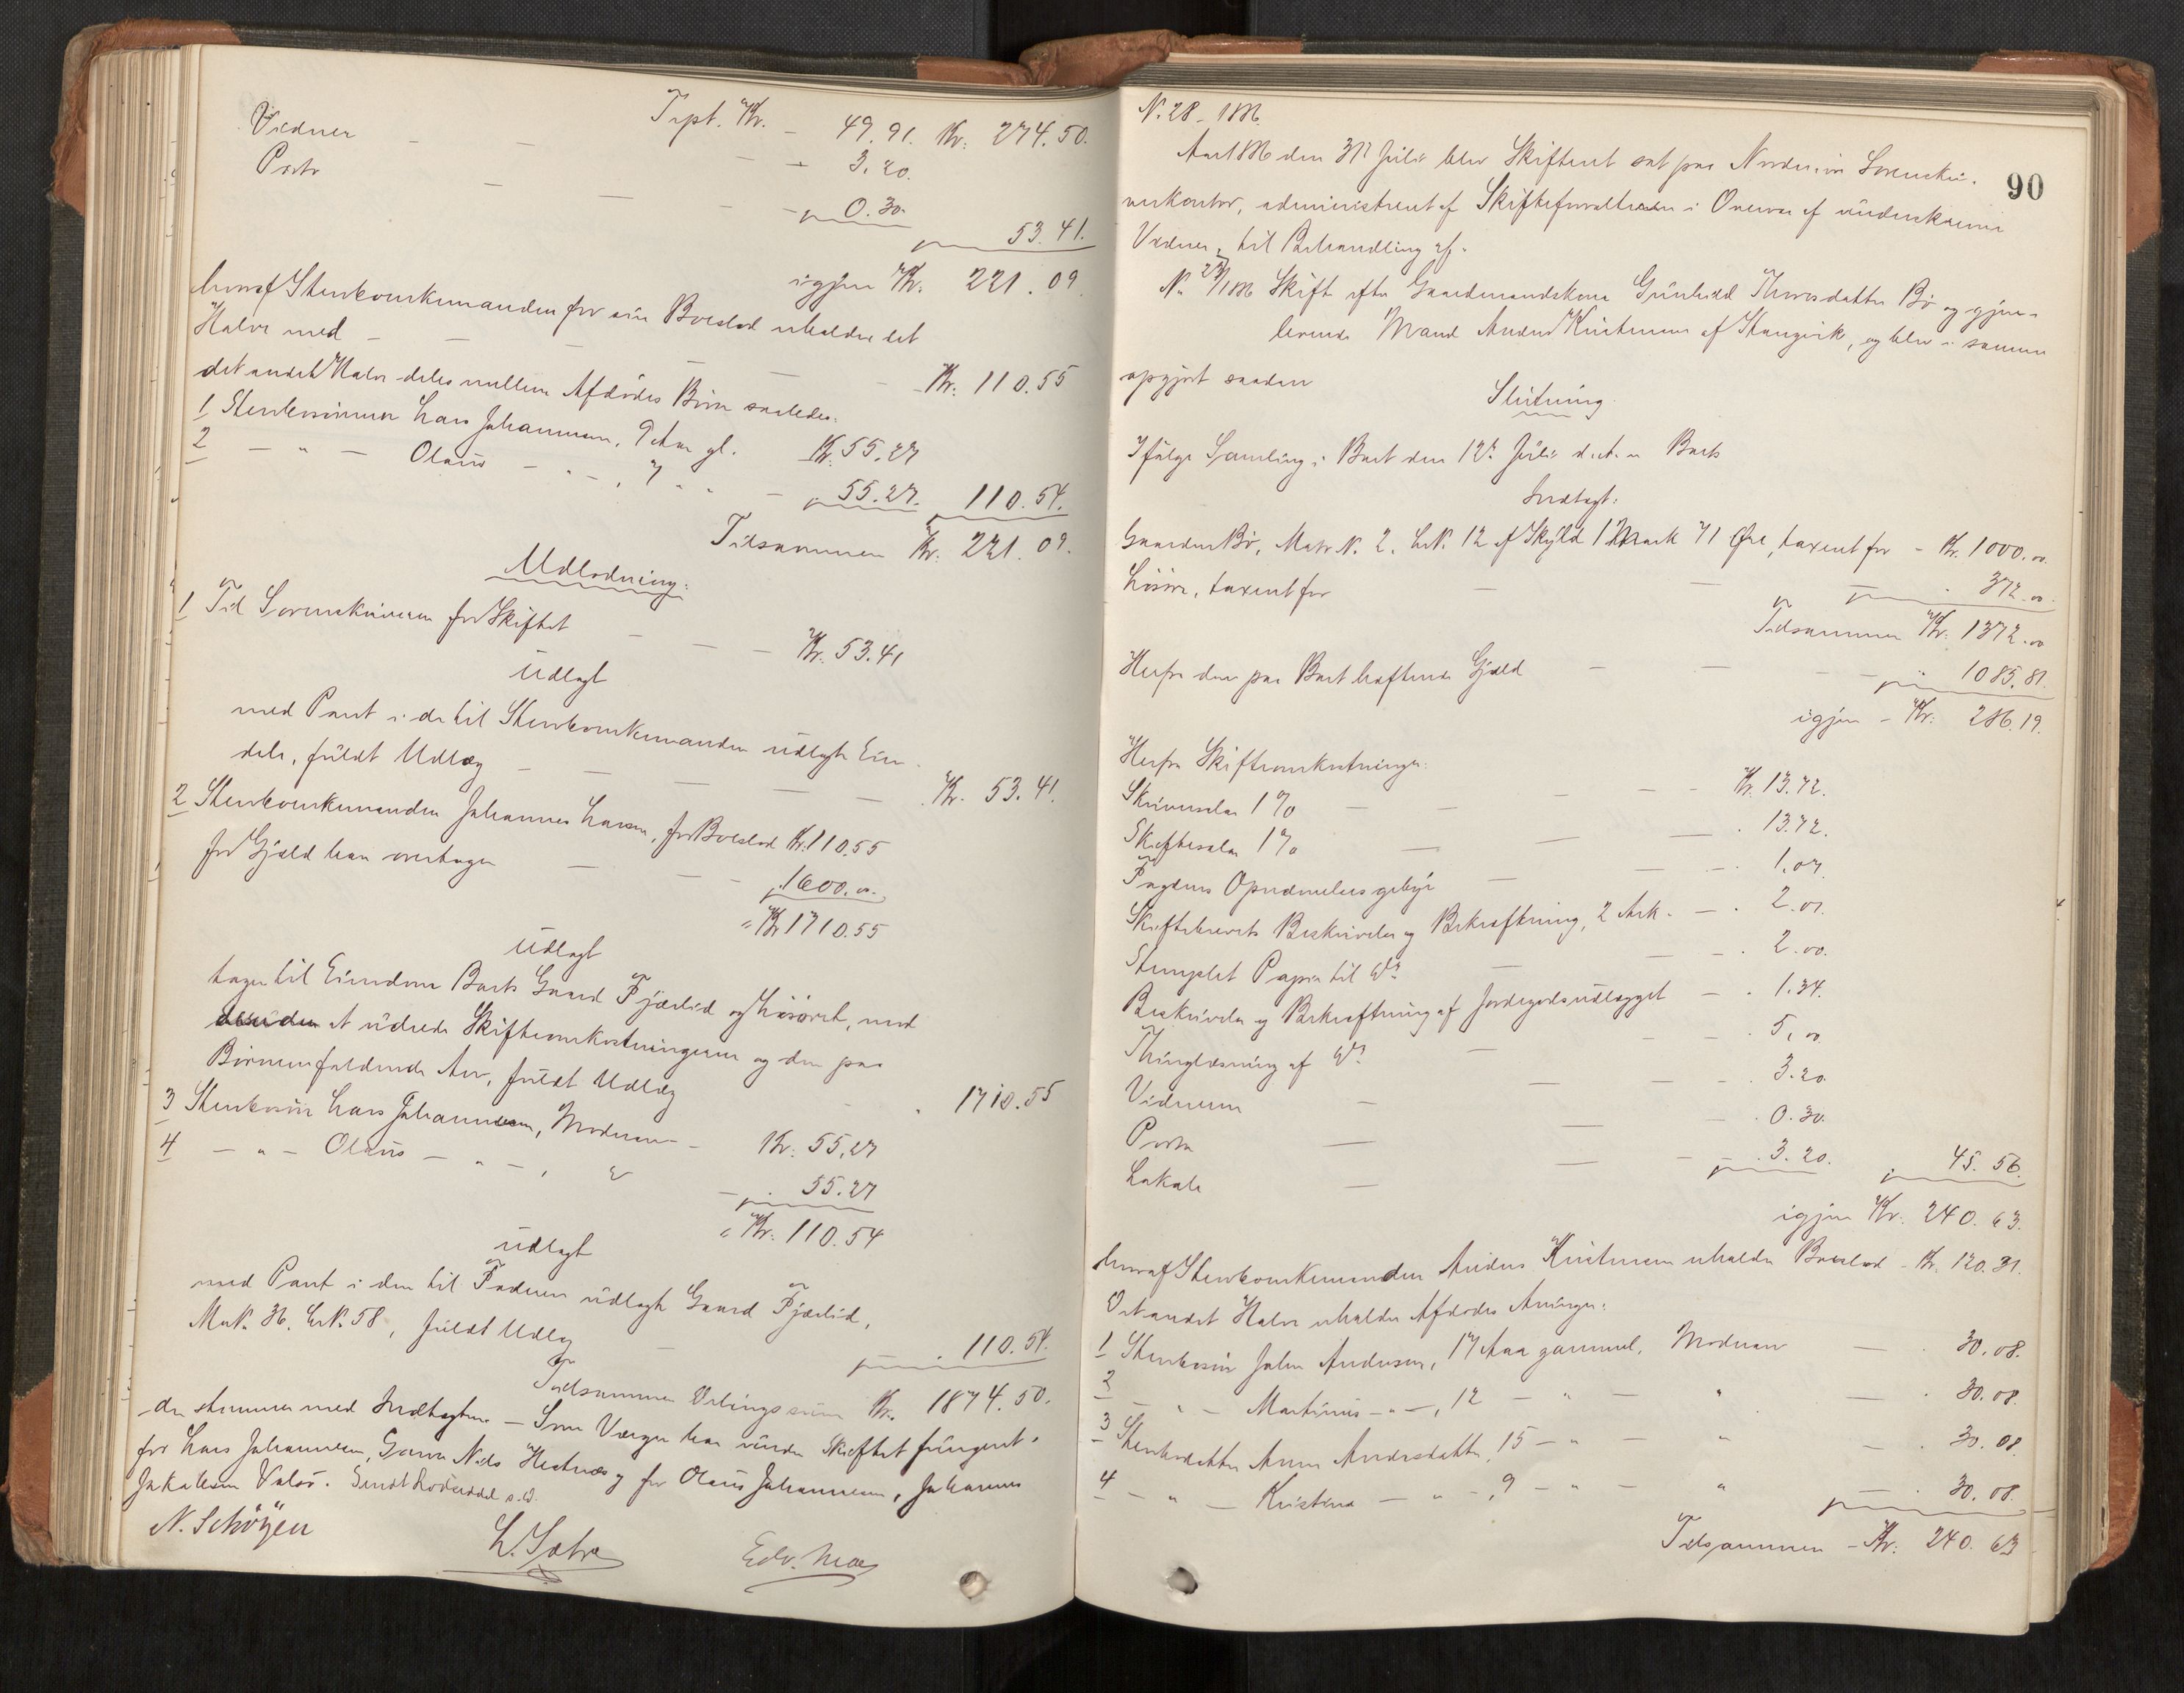 Trpt. Kr. – 49.91. Kr. 274.50.
Vidner – – – 3.20.
Porto – – – 0.30.
53.41.
igjen Kr. 221.09.
hvoraf Sterbboenkemanden for sin Boeslod erholder det
Halve med – – – Kr. 110.55
det andet Halve deles mellem Afdødes Børn saaledes:
1 Sterbsønnen Lars Johannesen, 9 Aar gl. Kr. 55.27
2 – " – Olaus – " –, 7 " " – 55.27. 110.54.
Tilsammen Kr. 221.09.
Udlodning:
1 Til Sorenskriveren for Skiftet – – Kr. 53.41
Udlagt
med Pant i de til Sterbboenkemanden udlagte Eien-
dele, fuldt Udlæg – – – Kr. 53.41.
2 Sterbboenkemanden Johannes Larsen, for Boeslod Kr. 110.55
for Gjæld han overtager – – – 1600.00
Kr. 1710.55
Udlagt
tager til Eiendom Boets Gaard Fjærlid og Løsøret, mod
at udrede Skifteomkostningerne og den paa
Børnene faldende Arv, fuldt Udlæg – 1710.55
3 Sterbsøn Lars Johannesen, Modrearv – Kr. 55.27
4 – " – Olaus – " –, " – 55.27
Kr. 110.54
Udlagt
med Pant i den til Faderen udlagte Gaard Fjærlid,
M.N. 36. L.N. 58, fuldt Udlæg – 110.54.
Tilsammen Delingssum Kr. 1874.50.
der stemmer med Indtægten. – Som Værger har under Skiftet fungeret:
for Lars Johannesen, Nils og for Olaus Johannesen, Johannes
Jakobsen Valsø. Sendt s.D.
N. Schöyen L. Sætre Edv. Moe
90
N. 28 – 1886.
Aar 1886 den 31' Juli blev Skifteret sat paa Nordmøre Sorenskri-
verkontor, administreret af Skifteforvalteren i Overvær af underskrevne
Vidner, til Behandling af:
N. 27/1886 Skifte efter Gaardmandskone Gunhild Thoresdatter Bø og gjen-
levende Mand Anders Kristensen af Stangvik, og blev i samme
opgjort saadan
Slutning
Ifølge Samling i Boet den 12' Juli d.A. er Boets
Indtægt:
Gaarden Bø, Matr N. 2. L.N. 12 af Skyld 1 Mark 71 Øre, taxeret for – Kr. 1000.00
Løsøre, taxeret for – – – 372.00
Tilsammen Kr. 1372.00
Herfra den paa Boet heftende Gjæld – – – 1085.81.
igjen – Kr. 286.19.
Herfra Skifteomkostninger:
Skriversalær 1 % – – – Kr. 13.72.
Skiftesalær 1 % – – – 13.72.
Fogdens Opnævnelsesgebyr – – – 1.07.
Skiftebrevets Beskrivelse og Bekræftning, 2 Ark. – 2.01.
Stemplet Papir til D° – – – 2.00.
Beskrivelse og Bekræftning af Jordegodsudlægget – 1.34.
Thinglæsning af D° – – – 5.00
Vidnerne – – – 3.20.
Porto – – – 0.30.
Lokale – – – 3.20. 45.56
igjen Kr. 240.63.
hvoraf Sterbboenkemanden Anders Kristensen erholder Boeslod – Kr. 120.31.
Det andet Halve erholder Afdødes Arvinger:
1 Sterbsøn John Andersen, 17 Aar gammel, Modrearv – 30.08.
2 – " – Martinus – " –, 12 – " – " – 30.08.
3 Sterbdatter Anne Andersdatter, 15 – " – " – 30.08
4 – " – Kristine – " –, 9 – " – " – 30.08.
Tilsammen – Kr. 240.63